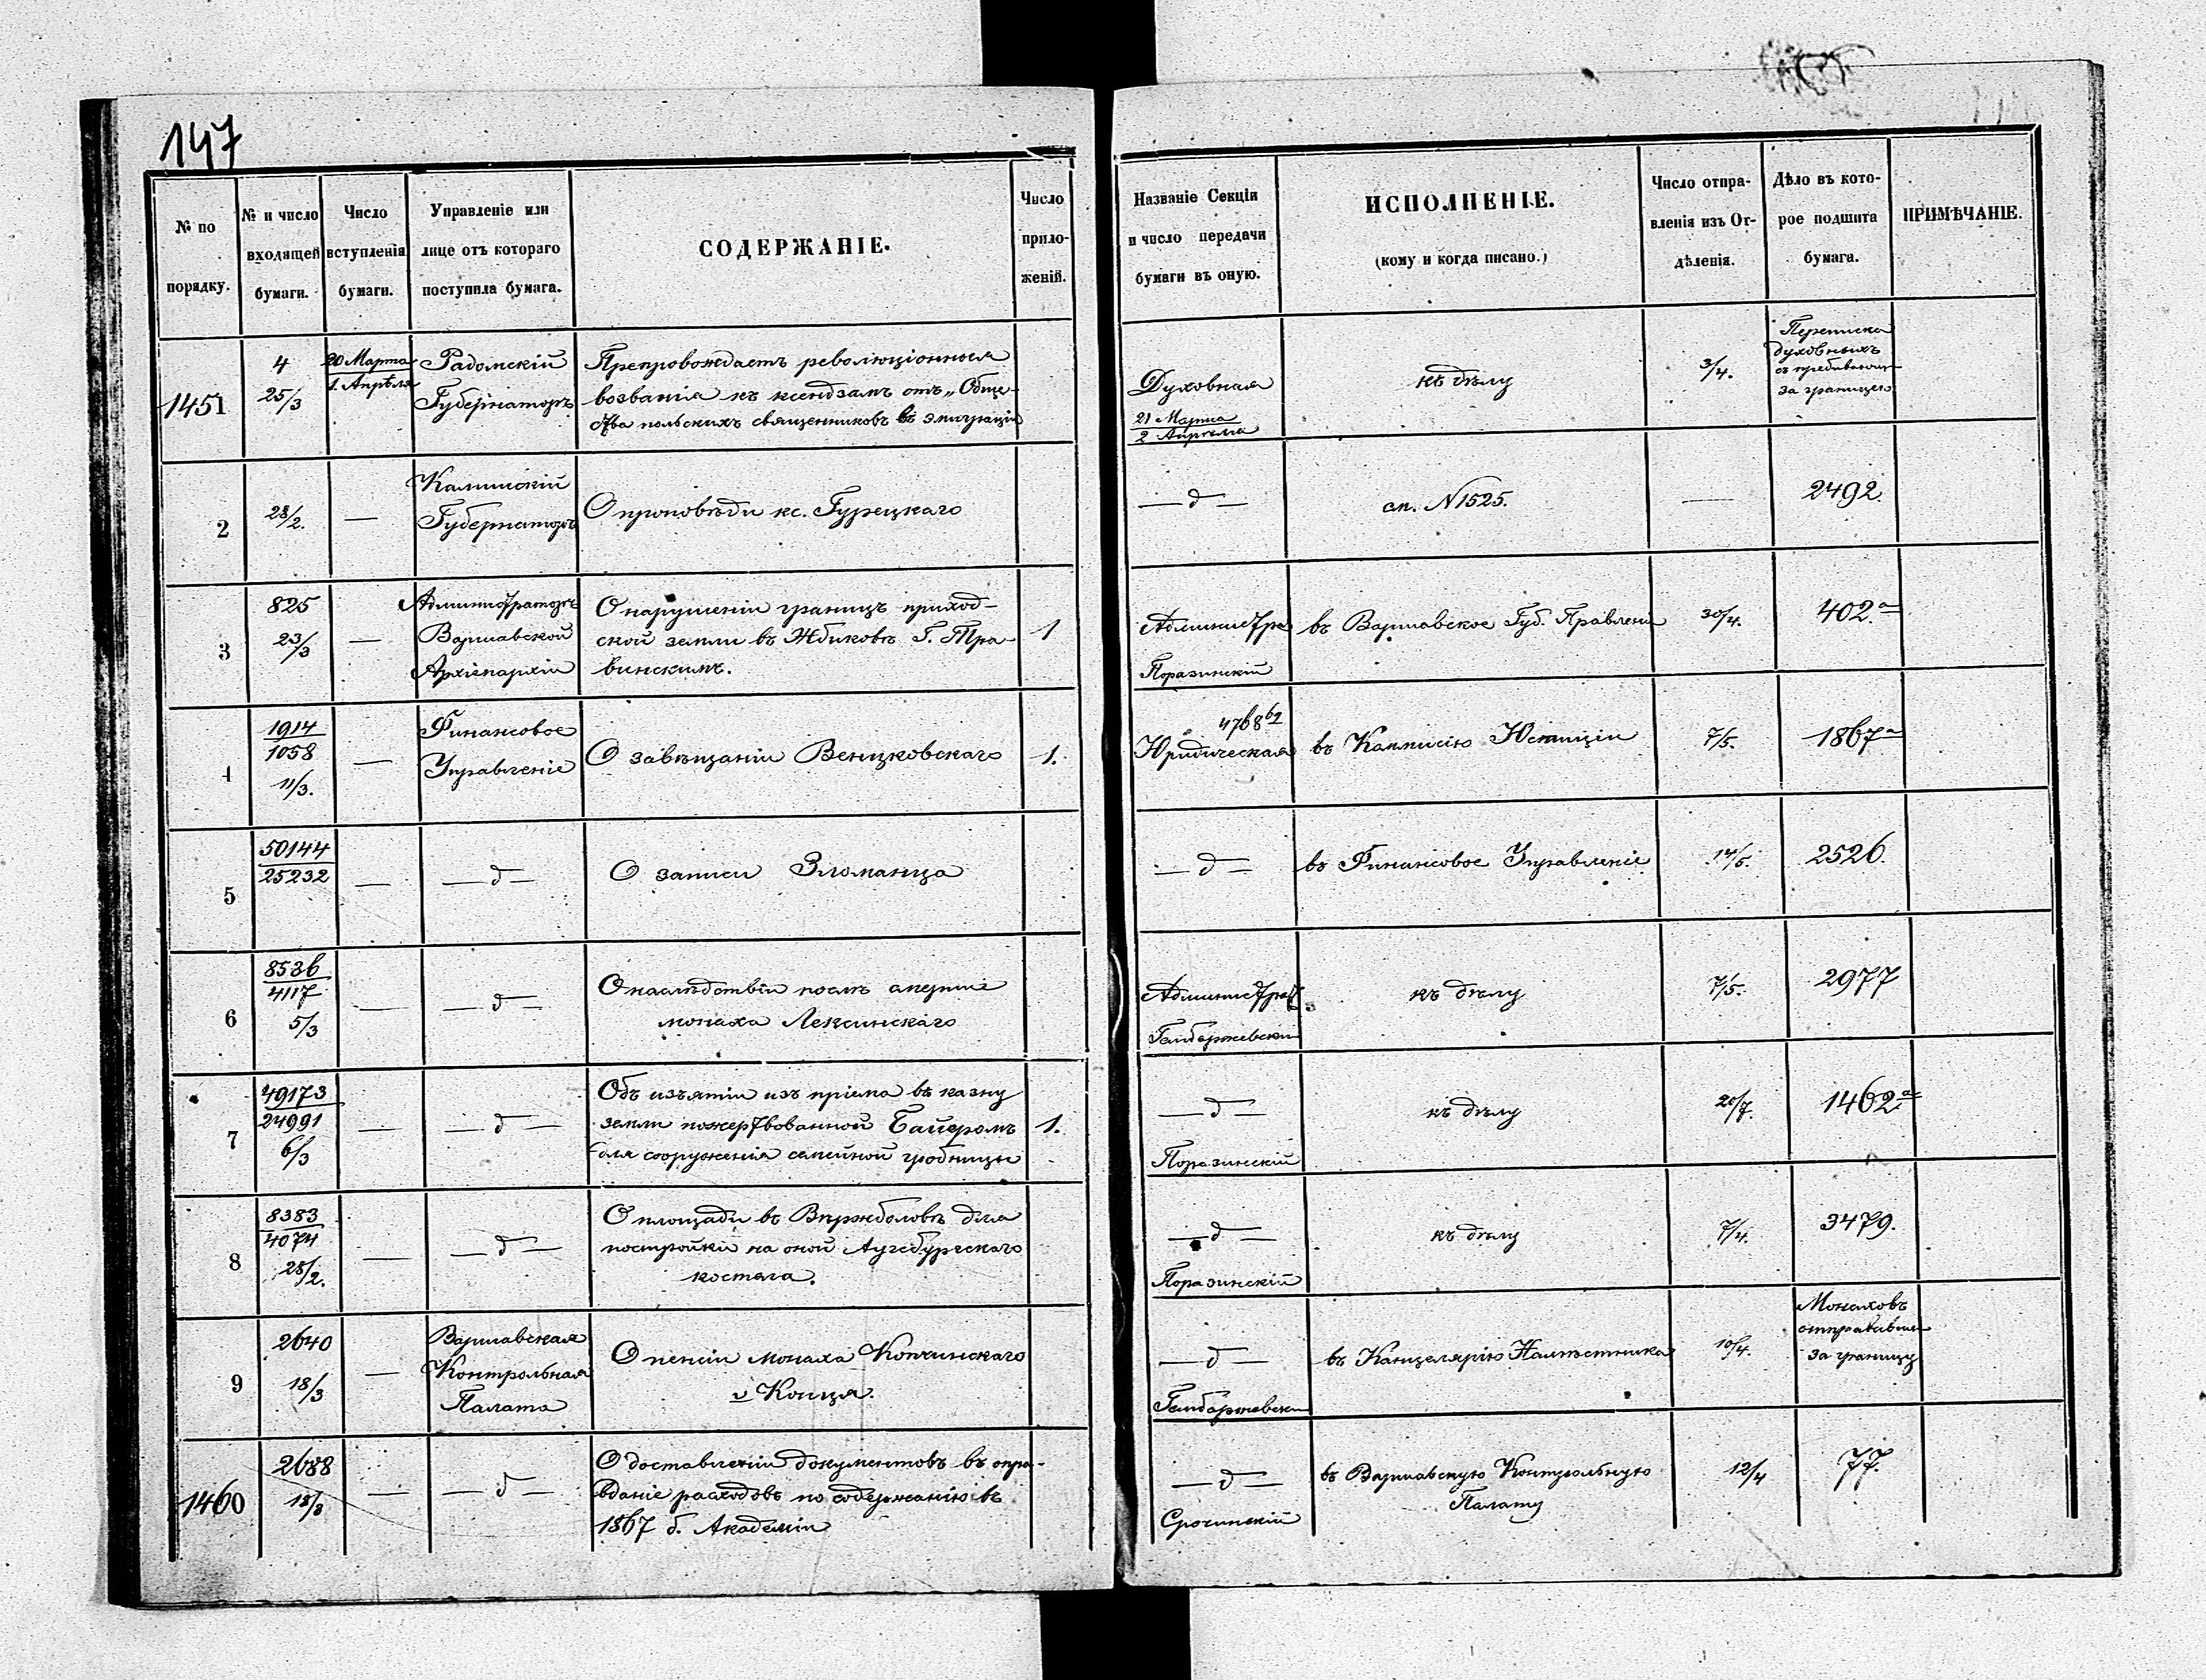 147
№ по порядку.
№ и число входящей бумаги.
Число вступленія бумаги.
Управленіе или лице отъ котораго поступила бумага.
СОДЕРЖАНІЕ.
Число приложеній.
Названіе Секціи и число передачи бумаги въ оную.
ИСПОЛНЕНІЕ.
(кому и когда писано.)
Число отправленія изъ Отдѣленія.
Дѣло въ которое подшита бумага.
ПРИМѢЧАНІЕ.
1451
4
25/3
20 Марта
1. Апрѣля
Радомскій
Губернаторъ
Препровождаетъ революціонныя
воззванія къ ксендзамъ отъ „Обще-
ства польскихъ священниковъ въ эмиграціи
Духовная
21 Марта
2 Апрѣля
къ дѣлу
3/4.
Переписка
духовныхъ
съ
за границею
2
28/2.
—
Калишскій
Губернаторъ
О проповѣди кс. Гурецкаго
— д —
см. N 1525.
—
2492.
3
825
23/3
—
Администраторъ
Варшавской
Архіепархіи
О нарушеніи границъ приход-
ской земли въ Жбиковѣ Г. Тра-
винскимъ.
1
Администра
Поразинскій
въ Варшавское Губ. Правленіе
30/4.
402.а
4
1914
1058
11/3.
—
Финансовое
Управленіе
О завѣщаніи Венцковскаго
1.
4768 62
Юридическая
въ Коммисію Юстиціи
7/5.
1867а
5
50144
25232
—
— д —
О записи Зломанца
— д —
въ Финансовое Управленіе
14/5.
2526.
6
8536
4117
5/3
—
— д —
О наслѣдствѣ послѣ смерти
монаха Лексинскаго
Администрат.
къ дѣлу
7/5.
2977
7
49173
24991
6/3
—
— д —
Объ изъятіи изъ пріема въ казну
земли пожертвованной Байеромъ
для сооруженія семейной гробницы
1.
— д —
Поразинскій
къ дѣлу
20/7.
1462.а
8
8383
4074
28/2.
—
— д —
О площади въ Вержболовѣ для
постройки на оной Аугсбургскаго
костела.
— д —
Поразинскій
къ дѣлу
7/4.
3479.
9
2640
18/3
—
Варшавская
Контрольная
Палата
О пенсіи монаха Копчинскаго
и Конця.
— д —
въ Канцелярію Намѣстника
10/4.
Монаховъ
за границу
1460
2688
18/3
—
— д —
О доставленіи документовъ въ опра-
вданіе расходовъ по содержанію въ
1867 б. Академіи
— д —
Срочинскій
въ Варшавскую Контрольную
Палату
12/4
77.